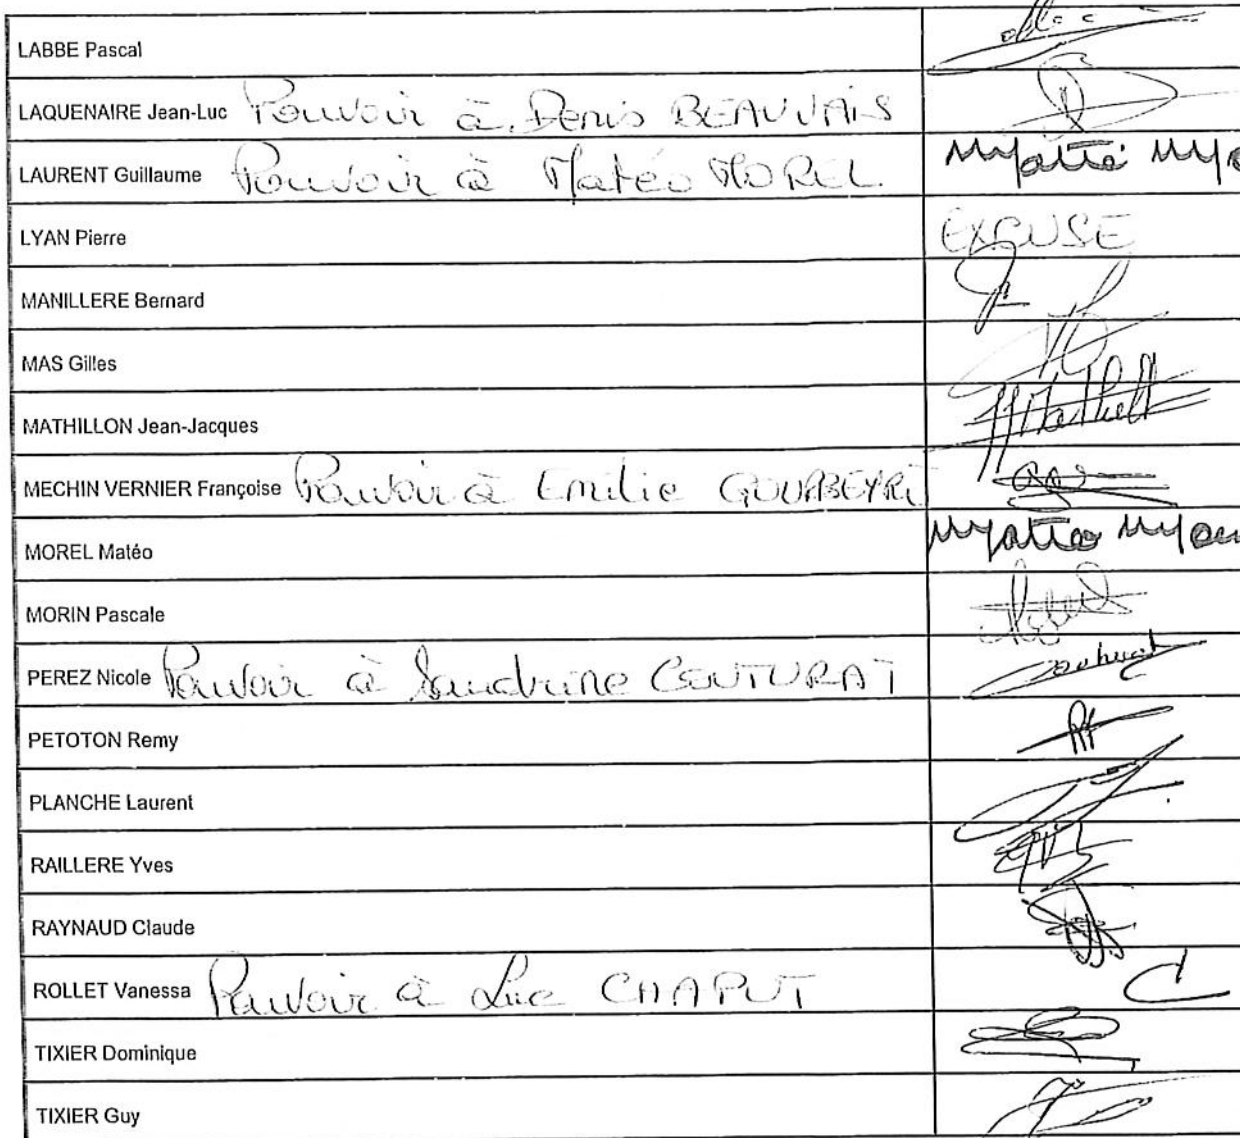 LABBE Pascal
LAQUENAIRE Jean-Luc Pouvoir à Denis BEAUVAIS
LAURENT Guillaume Pouvoir à Matéo MOREL
LYAN Pierre EXCUSE
MANILLERE Bernard
MAS Gilles
MATHILLON Jean-Jacques
MECHIN VERNIER Françoise Pouvoir à Emilie GOURBEYRE
MOREL Matéo
MORIN Pascale
PEREZ Nicole Pouvoir à Sandrine COUTURAT
PETOTON Remy
PLANCHE Laurent
RAILLERE Yves
RAYNAUD Claude
ROLLET Vanessa Pouvoir à Luc CHAPUT
TIXIER Dominique
TIXIER Guy